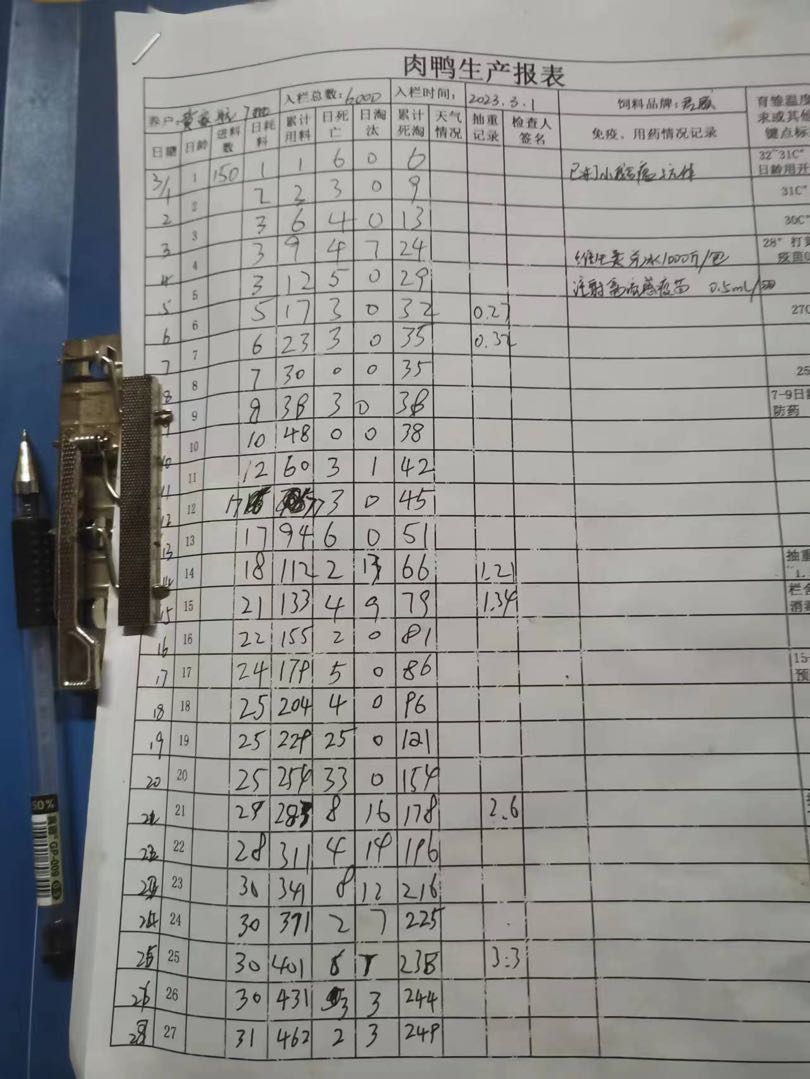 肉鸭生产报表
养户: 入栏总数:6000 入栏时间: 2023.3.1 饲料品牌: 育雏温度
求或其他
键点标
日龄 进料数 日耗料 累计用料 日死亡 日淘汰 累计死淘 天气情况 抽重记录 检查人签名 免疫、用药情况记录
3/1 1 150 1 1 6 0 6 32~31C°
日龄用开
2 2 3 0 9 31C°
2 3 3 6 4 0 13 30C°
3 4 3 9 4 7 24 维生素兑水1000斤/包 28° 打
4 5 3 12 5 0 29 注射禽流感疫苗 0.5ml/羽
5 6 5 17 3 0 32 0.27 27C
6 7 6 23 3 0 35 0.32
7 8 7 30 0 0 35 25
8 9 8 38 3 0 38 7-9日
防药
10 10 48 0 0 38
10 11 12 60 3 1 42
11 12 17 77 3 0 45
12 13 17 94 6 0 51
13 14 18 112 2 13 66 1.21 抽重
15 15 21 133 4 9 79 1.34 栏舍
消毒
16 16 22 155 2 0 81
17 17 24 179 5 0 86 15-
预
18 18 25 204 4 0 96
19 19 25 229 25 0 121
20 20 25 254 33 0 154
21 21 29 283 8 16 178 2.6
22 22 28 311 4 14 196
23 23 30 341 8 12 216
24 24 30 371 2 7 225
25 25 30 401 238 3.3
26 26 30 431 3 3 244
28 27 31 462 2 3 249
50%
GP-009